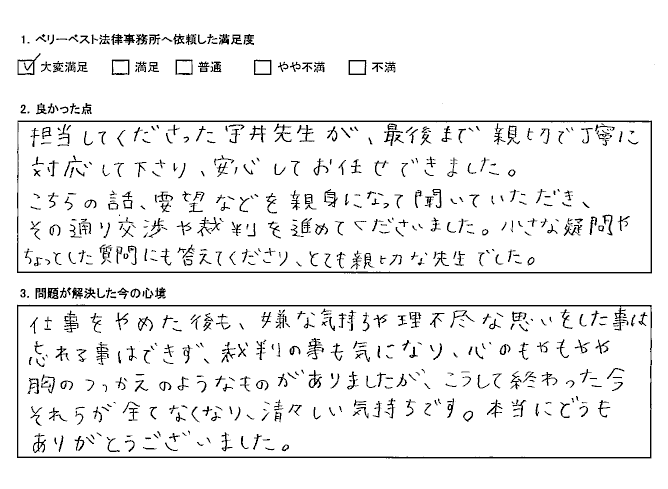 1. ベリーベスト法律事務所へ依頼した満足度
☑大変満足 □満足 □普通 □やや不満 □不満
2. 良かった点
担当してくださった宇井先生が、最後まで親切で丁寧に
対応して下さり、安心してお任せできました。
こちらの話、要望などを親身になって聞いていただき、
その通り交渉や裁判を進めてくださいました。小さな疑問や
ちょっとした質問にも答えてくださり、とても親切な先生でした。
3. 問題が解決した今の心境
仕事をやめた後も、嫌な気持ちや理不尽な思いをした事は
忘れる事はできず、裁判の事も気になり、心のもやもやや
胸のつっかえのようなものがありましたが、こうして終わった今
それらが全てなくなり、清々しい気持ちです。本当にどうも
ありがとうございました。